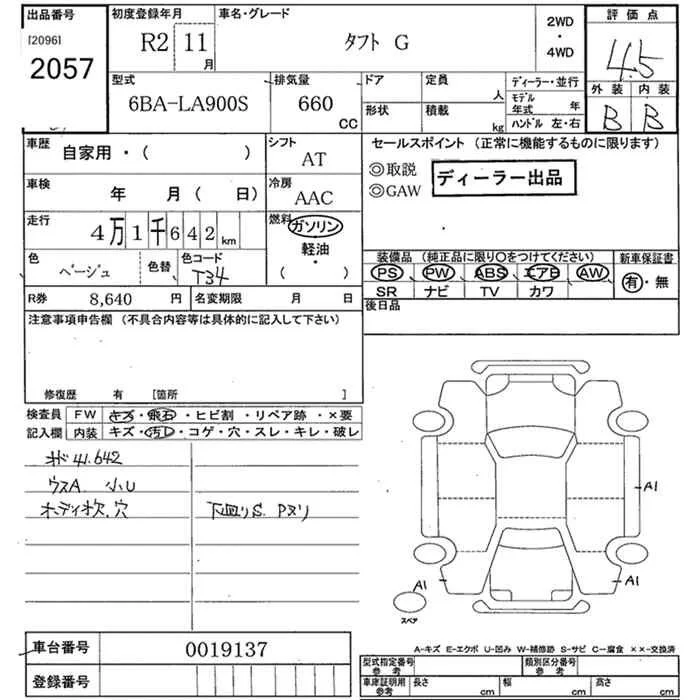 出品番号 初度登録年月 車名・グレード 2WD ・ 4WD 評価点
[2096] R2 11月 タフト G 4.5
2057 外装 内装
型式 排気量 ドア 定員 人 ディーラー・並行
6BA-LA900S 660 CC 形状 積載 kg モデル年式 年 B B
ハンドル 左・右
車歴 自家用・( ) シフト AT セールスポイント (正常に機能するものに限ります)
◎取説 ディーラー出品
◎GAW
車検 年 月 ( 日) 冷房 AAC
走行 4万1千642km 燃料 ガソリン
軽油
・
( )
色 ベージュ 色替 色コード T34
装備品 (純正品に限り○をつけてください) 新車保証書
PS PW ABS エアB AW 有・無
SR ナビ TV カワ
R券 8,640 円 名変期限 月 日 後日品
注意事項申告欄 (不具合内容等は具体的に記入して下さい)
修復歴 有 [箇所 ]
検査員 FW キズ・飛石・ヒビ割・リペア跡・×要
記入欄 内装 キズ・汚レ・コゲ・穴・スレ・キレ・破レ
オド 41.642
ウスA 小U
オーディオ欠.穴 下廻りS. Pヌリ
A1
A1 A1
スペア
車台番号 0019137
登録番号
A-キズ E-エクボ U-凹み W-補修跡 S-サビ C-腐食 ××-交換済
型式指定番号 参考 類別区分番号 参考
車庫証明用 参考 長さ cm 幅 cm 高さ cm